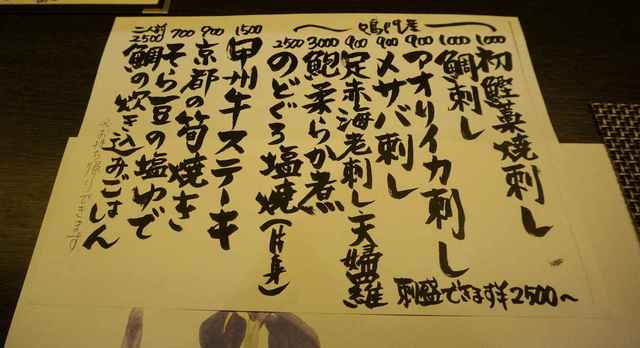 鳴門産
1000 初鰹藁焼刺し
1000 鯛刺し
900 アオリイカ刺し
900 〆サバ刺し
900 足赤海老刺し天婦羅
3000 鮑柔らか煮
2500 のどぐろ塩焼(片身)
1500 甲州牛ステーキ
900 京都の筍焼き
700 そら豆の塩ゆで
二人前 2500 鯛の炊き込みごはん
刺盛できます¥2500〜